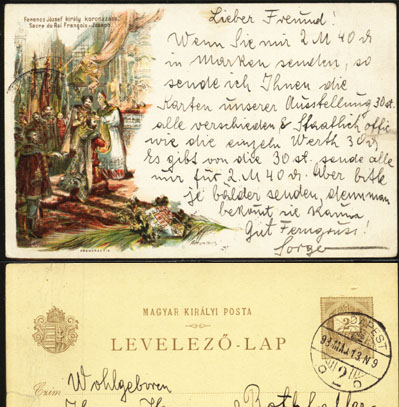 Ferencz József király koronázása.
Sacre du Roi François-Joseph.
Lieber Freund!
Wenn Sie mir 2 M 40 ₰
in Marken senden, so
sende ich Ihnen die
Karten unserer Ausstellung 30 st.
alle verschieden & Staatlich offic
wie die einzeln Werth 30 ₰
Es gibt von die 30 st. sende alle
nur für 2 M 40 ₰. Aber bitte
je bälder senden, denn man
bekomt sie kaum
Gut
MAGYAR KIRÁLYI POSTA
LEVELEZŐ-LAP
2
BUDAPEST
Czim
Wohlgeboren